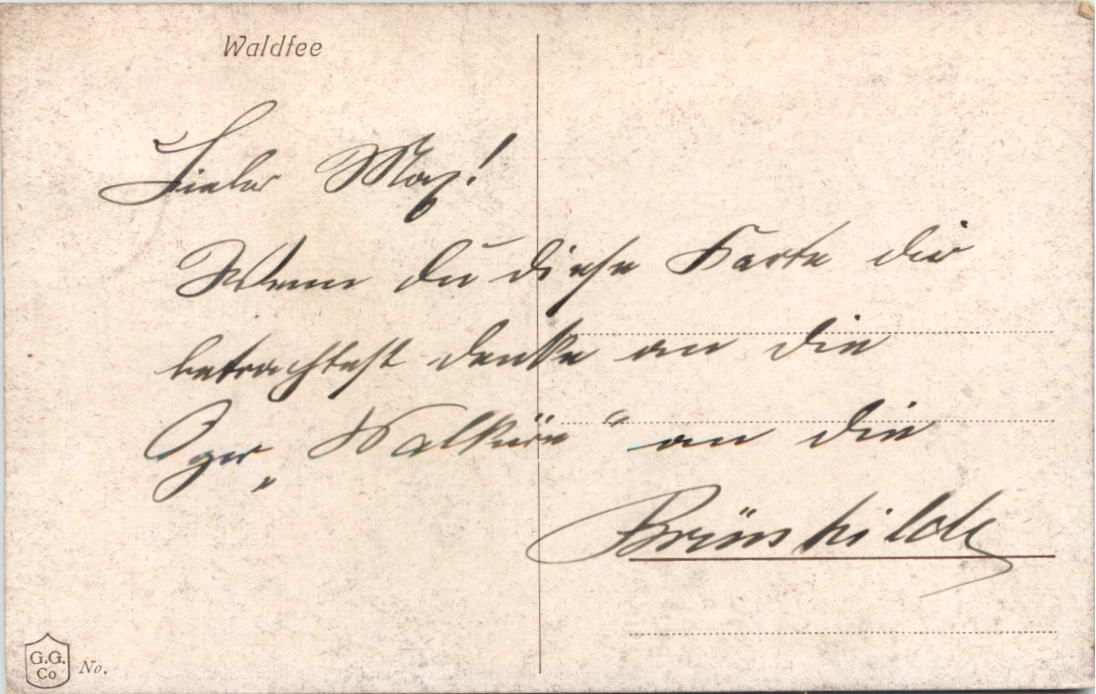 Waldfee
Lieber Max!
Wenn du diese Karte dir
betrachtest denke an die
Oper „Walküre“ an die
Brünhilde
G.G.
Co
No.